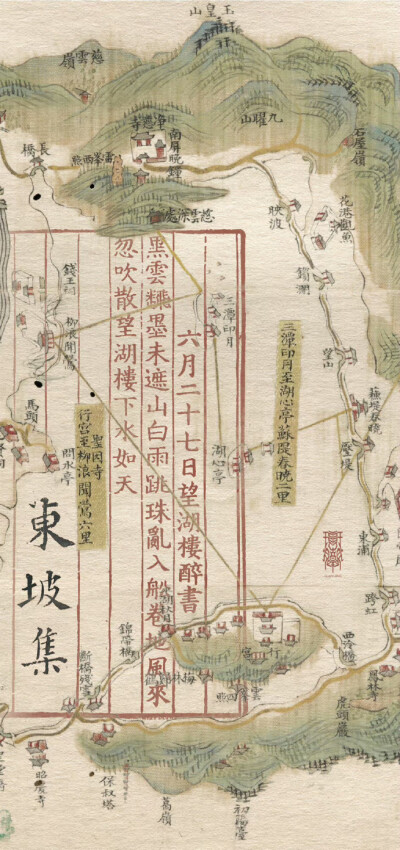 玉皇山
慈雲嶺
九曜山
淨慈寺
南屏晚鐘
石屋嶺
長橋
雷峯西照
花港觀魚
慈雲深處
映波
鎖瀾
錢王祠
三潭印月
望山
柳浪聞鶯
蘇堤春曉
三潭印月至湖心亭蘇隄春曉二里
壓堤
馬頭
湖心亭
問水亭
聖因寺
行宮至柳浪聞鶯六里
東浦
跨虹
六月二十七日望湖樓醉書
黑雲飜墨未遮山白雨跳珠亂入船卷地風來
忽吹散望湖樓下水如天
東坡集
西泠橋
錦帶橋
行宮
鳳林寺
斷橋殘雪
梅林歸鶴
雲峯四照
虎頭巖
昭慶寺
保叔塔
葛嶺
初陽臺